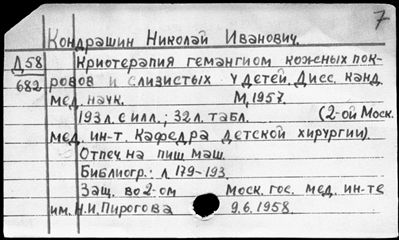 7
Кондрашин Николай Иванович.
Д58 Криотерапия гемангиом кожных пок-
682 ровов и слизистых у детей. Дисс. канд.
мед. наук. М, 1957.
193 л. с илл.; 32 л. табл. (2-ой Моск.
мед. ин-т. Кафедра детской хирургии).
Отпеч. на пиш. маш.
Библиогр.: л 179-193.
Защ. во 2-ом Моск. гос. мед. ин-те
им. Н.И. Пирогова 9.6.1958.